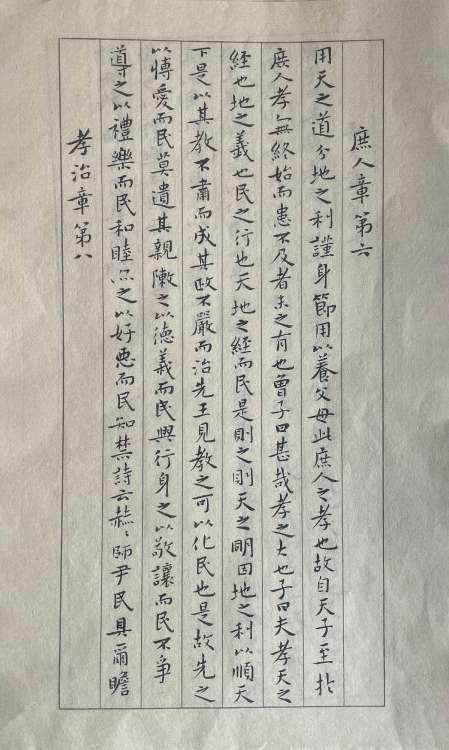 庶人章第六
用天之道分地之利謹身節用以養父母此庶人之孝也故自天子至於
庶人孝無終始而患不及者未之有也曾子曰甚哉孝之大也子曰夫孝天之
經也地之義也民之行也天地之經而民是則之則天之明因地之利以順天
下是以其教不肅而成其政不嚴而治先王見教之可以化民也是故先之
以博愛而民莫遺其親陳之以德義而民興行身之以敬讓而民不爭
導之以禮樂而民和睦示之以好惡而民知禁詩云赫〻師尹民具爾瞻
孝治章第八